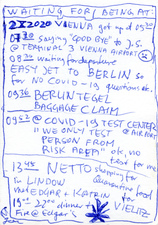 WAITING FOR/BEING AT:
2X2020 VIENNA got up at 05
07 30 Saying "GOOD BYE" to J.S.
@ TERMINAL 3 VIENNA AIRPORT
08 waiting for departure
EAST JET TO BERLIN so
far NO COVID-19 questions etc.
09 BERLIN TEGEL
BAGGAGE CLAIM
09 @ COVID-19 TEST CENTER
"WE ONLY TEST @ AIRPORT
PERSON FROM
RISK AREA" ok, no
test for me
13 45 NETTO shopping for
quarantine food
IN LINDOW
EDGAR + KATRIN for
19 - 22 00 dinner + VIELITZ
Fire @ Edgar's